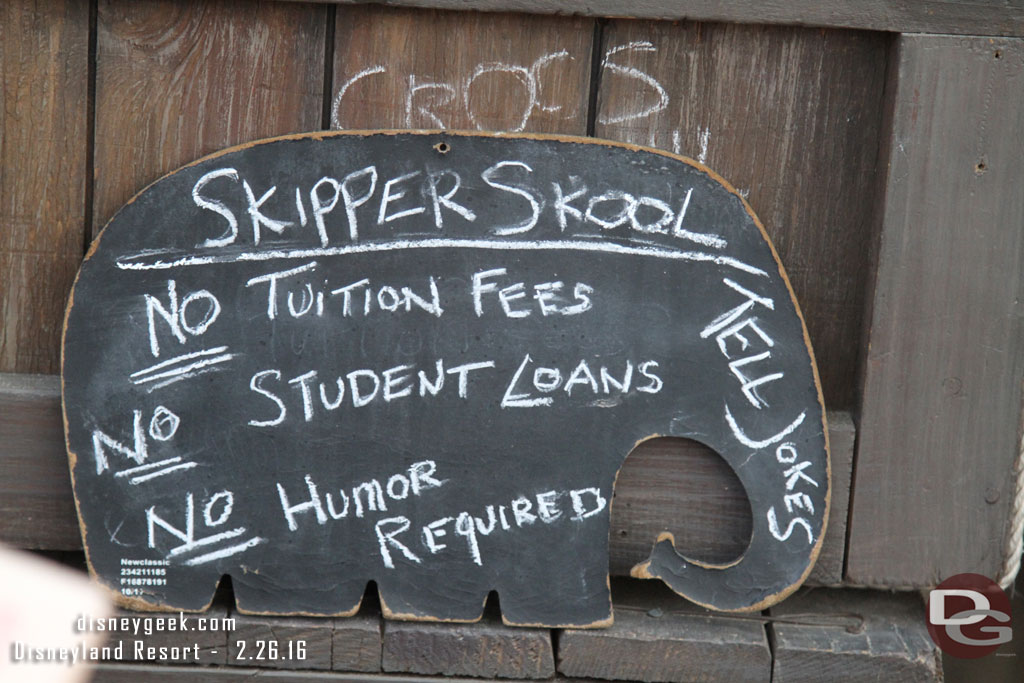 CROCS
SKIPPER SKOOL
NO TUITION FEES
NO STUDENT LOANS
NO HUMOR
REQUIRED
YELL JOKES
Newclassic
234211185
F16878191
disneygeek.com
Disneyland Resort - 2.26.16
DG